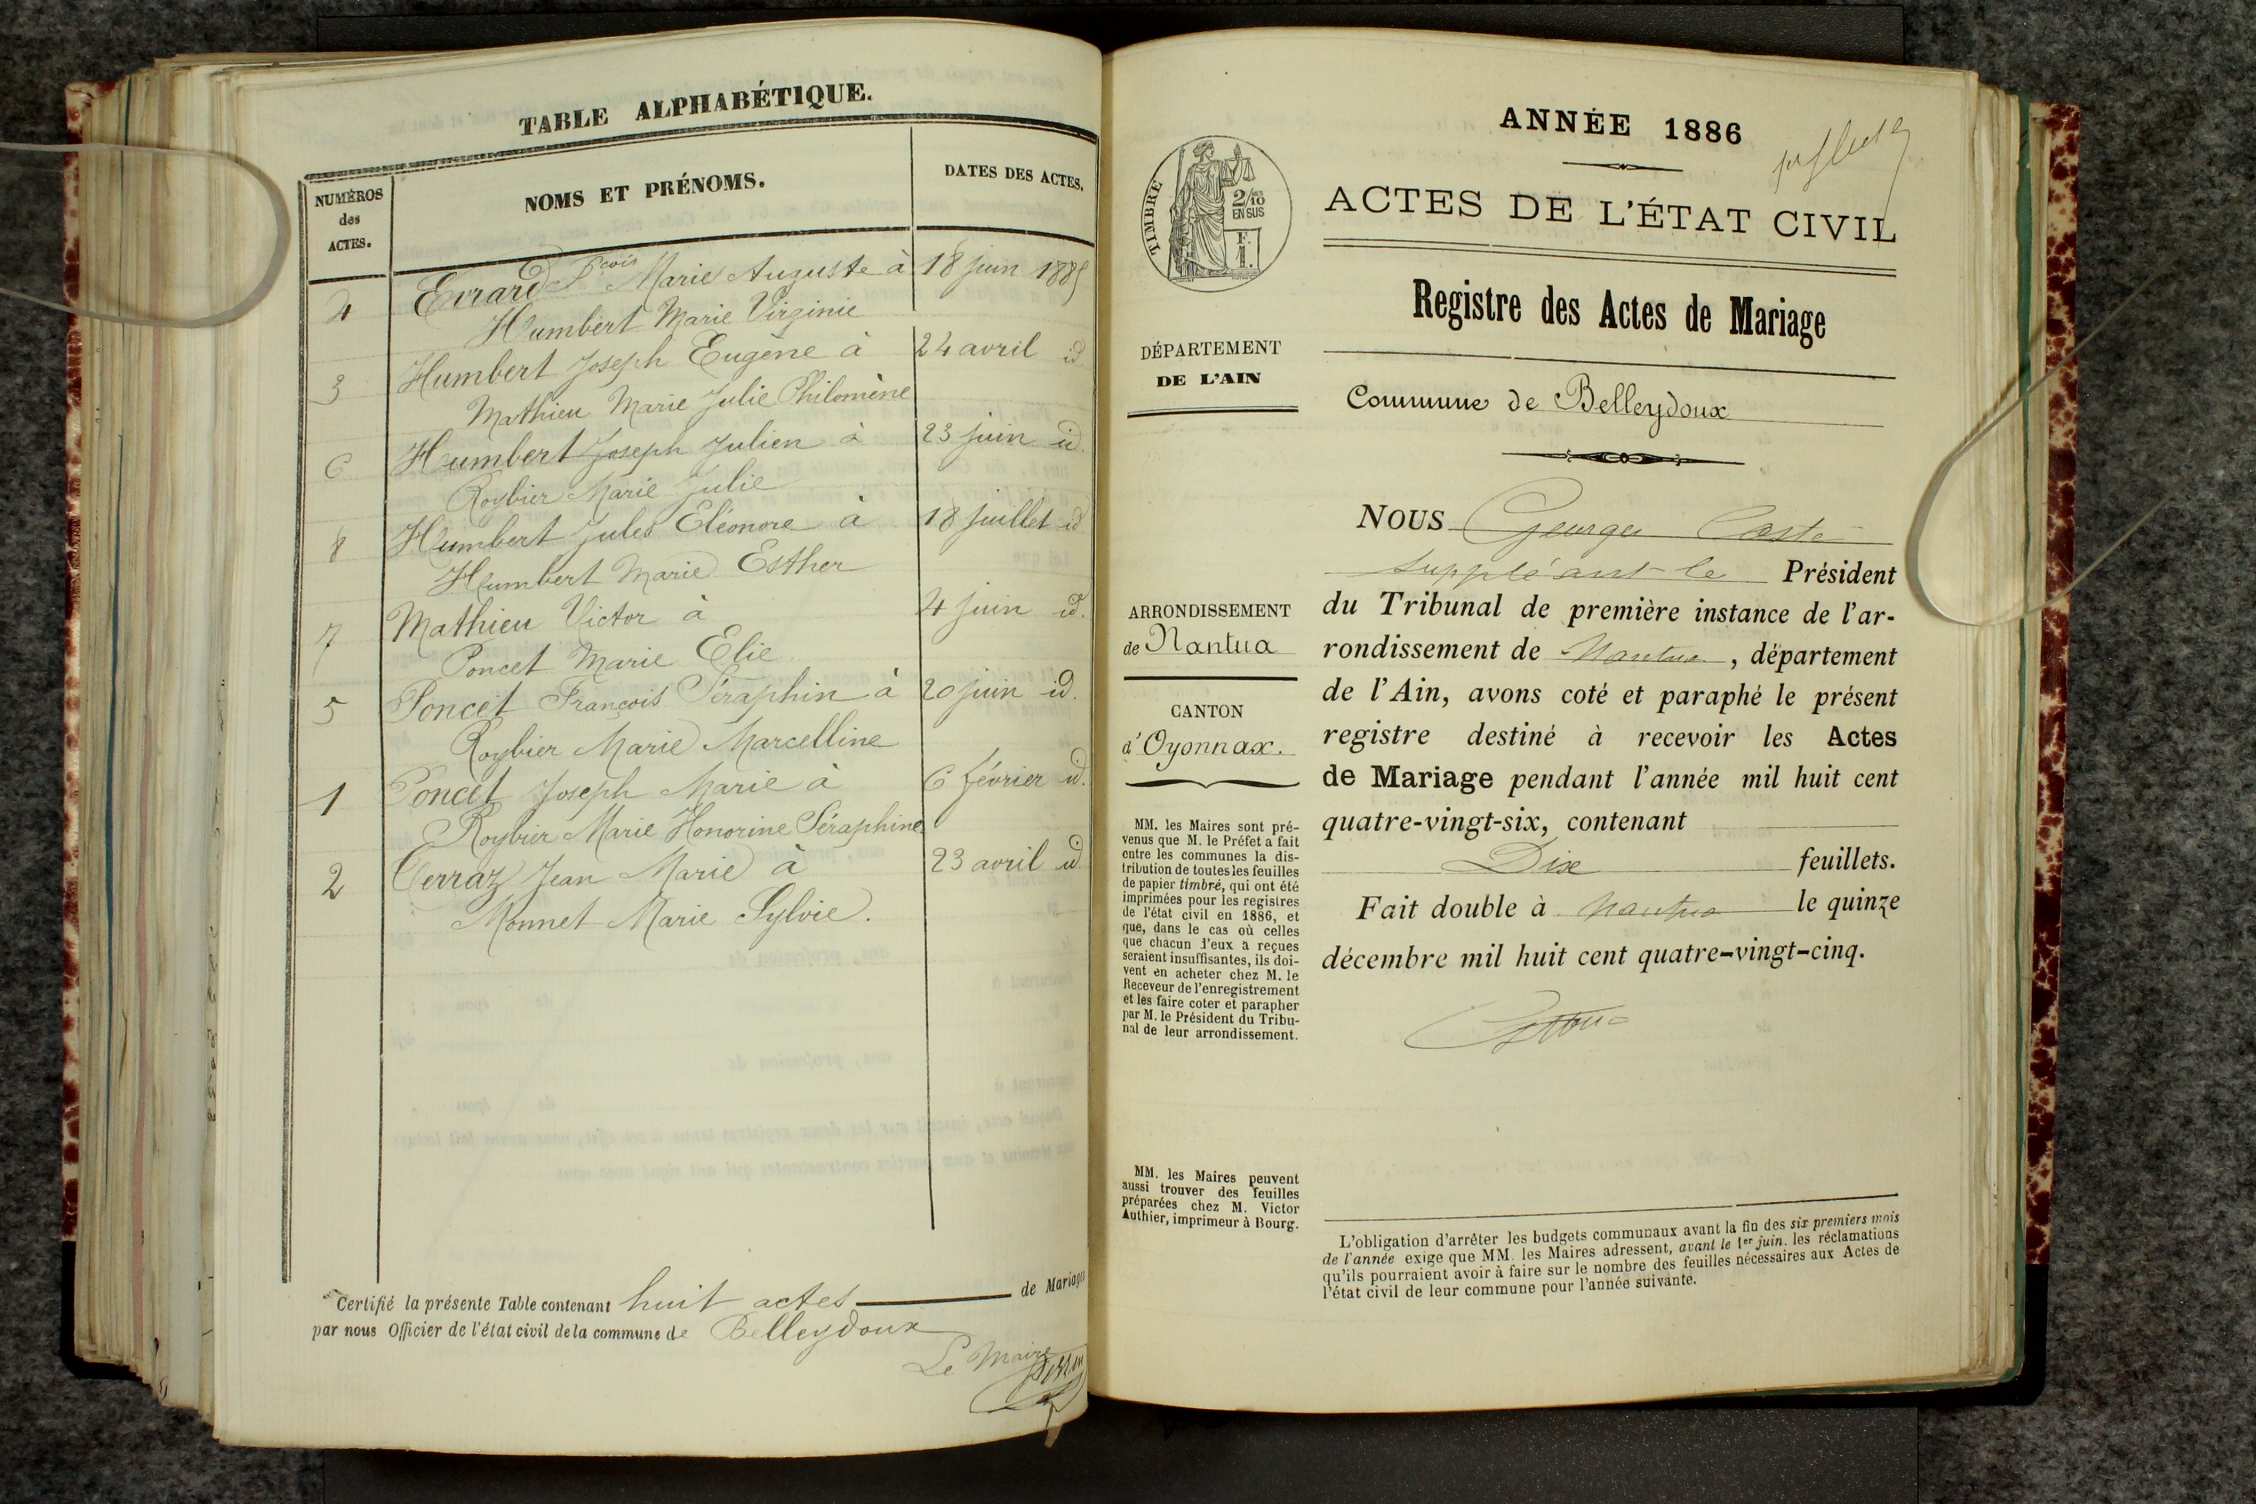 TABLE ALPHABÉTIQUE.
NUMÉROS
des
ACTES.
NOMS ET PRÉNOMS.
DATES DES ACTES.
4 Evrard Fcois Marie Auguste à 18 juin 1885
Humbert Marie Virginie
3 Humbert Joseph Eugène à 24 avril id.
Mathieu Marie Julie Philomène
6 Humbert Joseph Julien à 23 juin id.
Roybier Marie Julie
8 Humbert Jules Eléonore à 18 juillet id
Humbert Marie Esther
7 Mathieu Victor à 4 juin id.
Poncet Marie Elie
5 Poncet François Séraphin à 20 juin id.
Roybier Marie Marcelline
1 Poncet Joseph Marie à 6 février id.
Roybier Marie Honorine Séraphine
2 Verraz Jean Marie à 23 avril id.
Monnet Marie Sylvie.
Certifié la présente Table contenant huit actes de Mariages
par nous Officier de l'état civil de la commune de Belleydoux
Le Maire
ANNÉE 1886
ACTES DE L'ÉTAT CIVIL
Registre des Actes de Mariage
Commune de Belleydoux
TIMBRE
2/10
EN SUS
F.
1.
DÉPARTEMENT
DE L'AIN
ARRONDISSEMENT
de Nantua
CANTON
d'Oyonnax.
MM. les Maires sont pré-
venus que M. le Préfet a fait
entre les communes la dis-
tribution de toutes les feuilles
de papier timbré, qui ont été
imprimées pour les registres
de l'état civil en 1886, et
que, dans le cas où celles
que chacun d'eux a reçues
seraient insuffisantes, ils doi-
vent en acheter chez M. le
Receveur de l'enregistrement
et les faire coter et parapher
par M. le Président du Tribu-
nal de leur arrondissement.
MM. les Maires peuvent
aussi trouver des feuilles
préparées chez M. Victor
Authier, imprimeur à Bourg.
NOUS Georges
suppléant le Président
du Tribunal de première instance de l'ar-
rondissement de Nantua, département
de l'Ain, avons coté et paraphé le présent
registre destiné à recevoir les Actes
de Mariage pendant l'année mil huit cent
quatre-vingt-six, contenant
Dix feuillets.
Fait double à Nantua le quinze
décembre mil huit cent quatre-vingt-cinq.
L'obligation d'arrêter les budgets communaux avant la fin des six premiers mois
de l'année exige que MM. les Maires adressent, avant le 1er juin, les réclamations
qu'ils pourraient avoir à faire sur le nombre des feuilles nécessaires aux Actes de
l'état civil de leur commune pour l'année suivante.